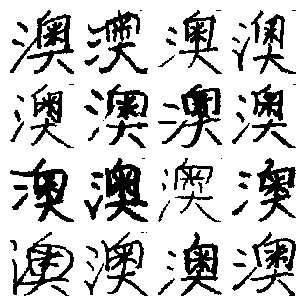 澳澳澳澳
澳澳澳澳
澳澳澳澳
澳澳澳澳